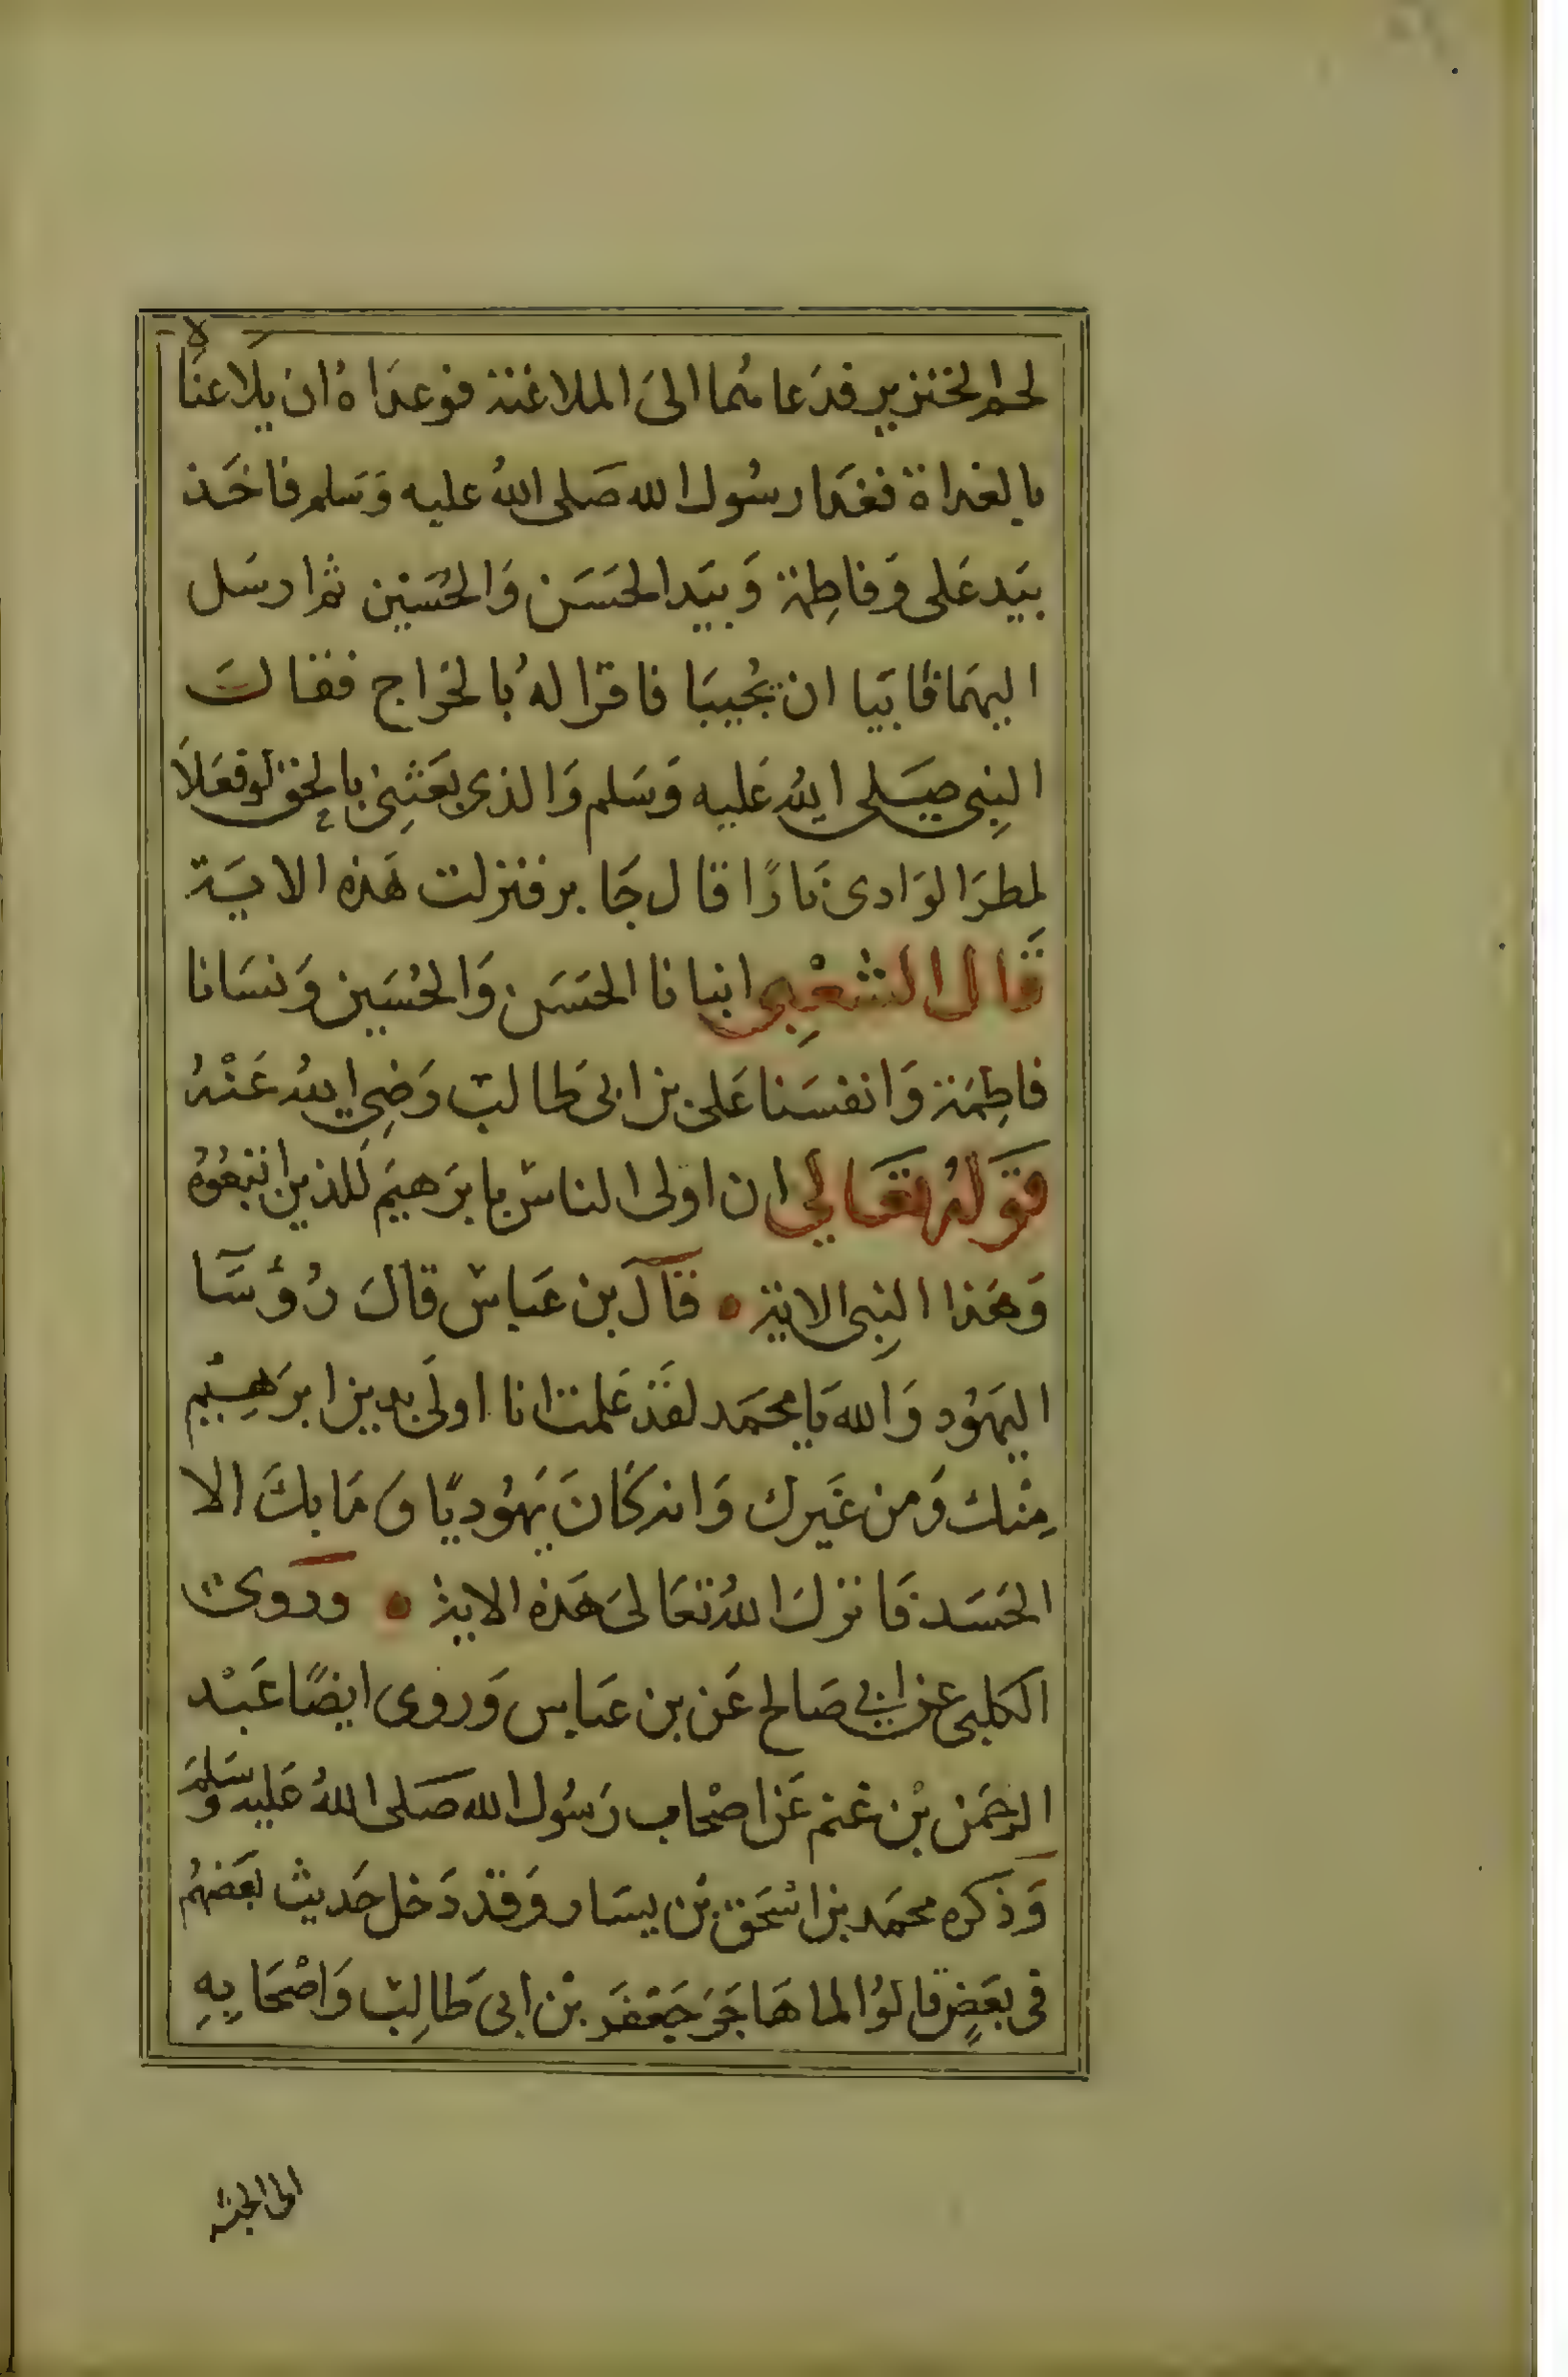 لحم الخنزير فدعاهُما الىَ الملاعَنة فوعدَاهُ ان يلَاعناَ
بالغداة فغدَا رسُول الله صَلى اللهُ عليه وَسَلم فاخَذ
بيَد عَلى وَفاطِمة وَبيَد الحَسَن وَالحُسَيْن ثم ارسَل
اليهمَا فابَيا ان يجُيبَا فاقرا لهُ بالخرَاج فقالَ
النبِى صَلى اللهُ عَليه وَسَلم وَالذى بعَثنِى بالحق لو فعَلاَ
لمطرَ الوَادى نَارًا قال جَابر فنزلت هَذه الايَة
قَال الشعْبِى ابنانا الحَسَن وَالحُسَين وَنسَانا
فاطِمَة وَانفسَنا عَلى بن ابى طَالب رَضِى اللهُ عَنْهُ
قوَلهُ تعَالى ان اولى الناس بابرَهيَم لَلذين اتبعُوُه
وَهَذا النبِى الاية ۰ قاَل بن عَباس قالَ رُؤسَا
اليهَوُد وَالله يَا محمَد لقَد عَلمت انا اولىَ بدين ابرَهِيْم
مِنْك وَمن غَيرك وَانه كَانَ يَهوُديًا وَمَا بكَ الا
الحَسَد فَانزلَ اللهُ تعَالىَ هَذه الاية ۰ وروىَ
الكلبى عن ابي صَالح عَن بن عَباس وَروى ايضًا عَبْد
الرحمَن بْن غنم عَن اصْحَاب رَسُول الله صَلى اللهُ عَليه وَسَلم
وَذكره محمَد بن اسْحَق بْن يسَار وَقد دَخل حَديث بعَضهُم
فى بعَضٍ قالوُا لما هَاجَرَ جَعْفَر بْن ابى طَالِب وَاصْحَابِهِ
الى الحبشه